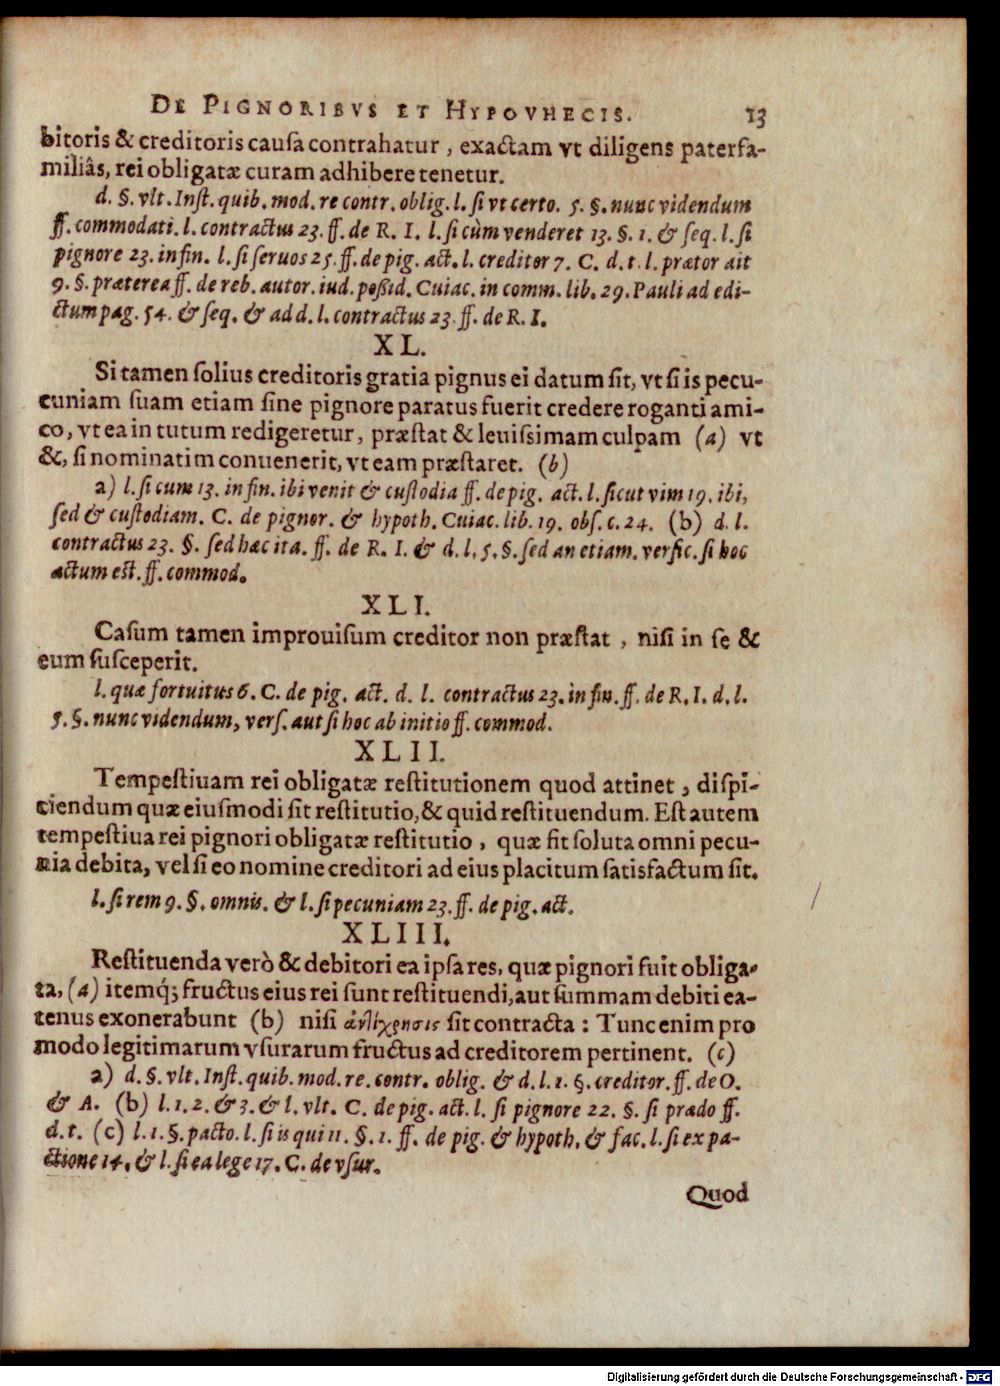 DE PIGNORIBVS ET HYPOVHECIS. 13
bitoris & creditoris cauſa contrahatur, exactam vt diligens paterfa-
miliâs, rei obligatæ curam adhibere tenetur.
d. §. vlt. Inſt. quib. mod. re contr. oblig. l. ſi vt certo. 5. §. nunc videndum
ff. commodati. l. contractus 23. ff. de R. I. l. ſi cùm venderet 13. §. 1. & ſeq. l. ſi
pignore 23. in fin. l. ſi ſeruos 25. ff. de pig. act. l. creditor 7. C. d. t. l. prætor ait
9. §. præterea ff. de reb. autor. iud. poßid. Cuiac. in comm. lib. 29. Pauli ad edi-
ctum pag. 54. & ſeq. & ad d. l. contractus 23. ff. de R. I.
XL.
Si tamen ſolius creditoris gratia pignus ei datum ſit, vt ſi is pecu-
cuniam ſuam etiam ſine pignore paratus fuerit credere roganti ami-
co, vt ea in tutum redigeretur, præſtat & leuiſsimam culpam (a) vt
&, ſi nominatim conuenerit, vt eam præſtaret. (b)
a) l. ſi cum 13. in fin. ibi venit & cuſtodia ff. de pig. act. l. ſicut vim 19. ibi,
ſed & cuſtodiam. C. de pignor. & hypoth. Cuiac. lib. 19. obſ. c. 24. (b) d. l.
contractus 23. §. ſed hæc ita. ff. de R. I. & d. l. 5. §. ſed an etiam. verſic. ſi hoc
actum est. ff. commod.
XLI.
Caſum tamen improuiſum creditor non præſtat, niſi in ſe &
eum ſuſceperit.
l. quæ fortuitus 6. C. de pig. act. d. l. contractus 23. in fin. ff. de R. I. d. l.
5. §. nunc videndum, verſ. aut ſi hoc ab initio ff. commod.
XLII.
Tempeſtiuam rei obligatæ reſtitutionem quod attinet, diſpi-
ciendum quæ eiuſmodi ſit reſtitutio, & quid reſtituendum. Eſt autem
tempeſtiua rei pignori obligatæ reſtitutio, quæ fit ſoluta omni pecu-
nia debita, vel ſi eo nomine creditori ad eius placitum ſatisfactum ſit.
l. ſi rem 9. §. omnis. & l. ſi pecuniam 23. ff. de pig. act.
XLIII.
Reſtituenda verò & debitori ea ipſa res, quæ pignori fuit obliga-
ta, (a) itemq́; fructus eius rei ſunt reſtituendi, aut ſummam debiti ea-
tenus exonerabunt (b) niſi ἀντίχρησις ſit contracta: Tunc enim pro
modo legitimarum vſurarum fructus ad creditorem pertinent. (c)
a) d. §. vlt. Inſt. quib. mod. re. contr. oblig. & d. l. 1. §. creditor. ff. de O.
& A. (b) l. 1. 2. & 3. & l. vlt. C. de pig. act. l. ſi pignore 22. §. ſi prædo ff.
d. t. (c) l. 1. §. pacto. l. ſi is qui 11. §. 1. ff. de pig. & hypoth. & fac. l. ſi ex pa-
ctione 14. & l. ſi ea lege 17. C. de vſur.
Quod
Digitalisierung gefördert durch die Deutsche Forschungsgemeinschaft - DFG